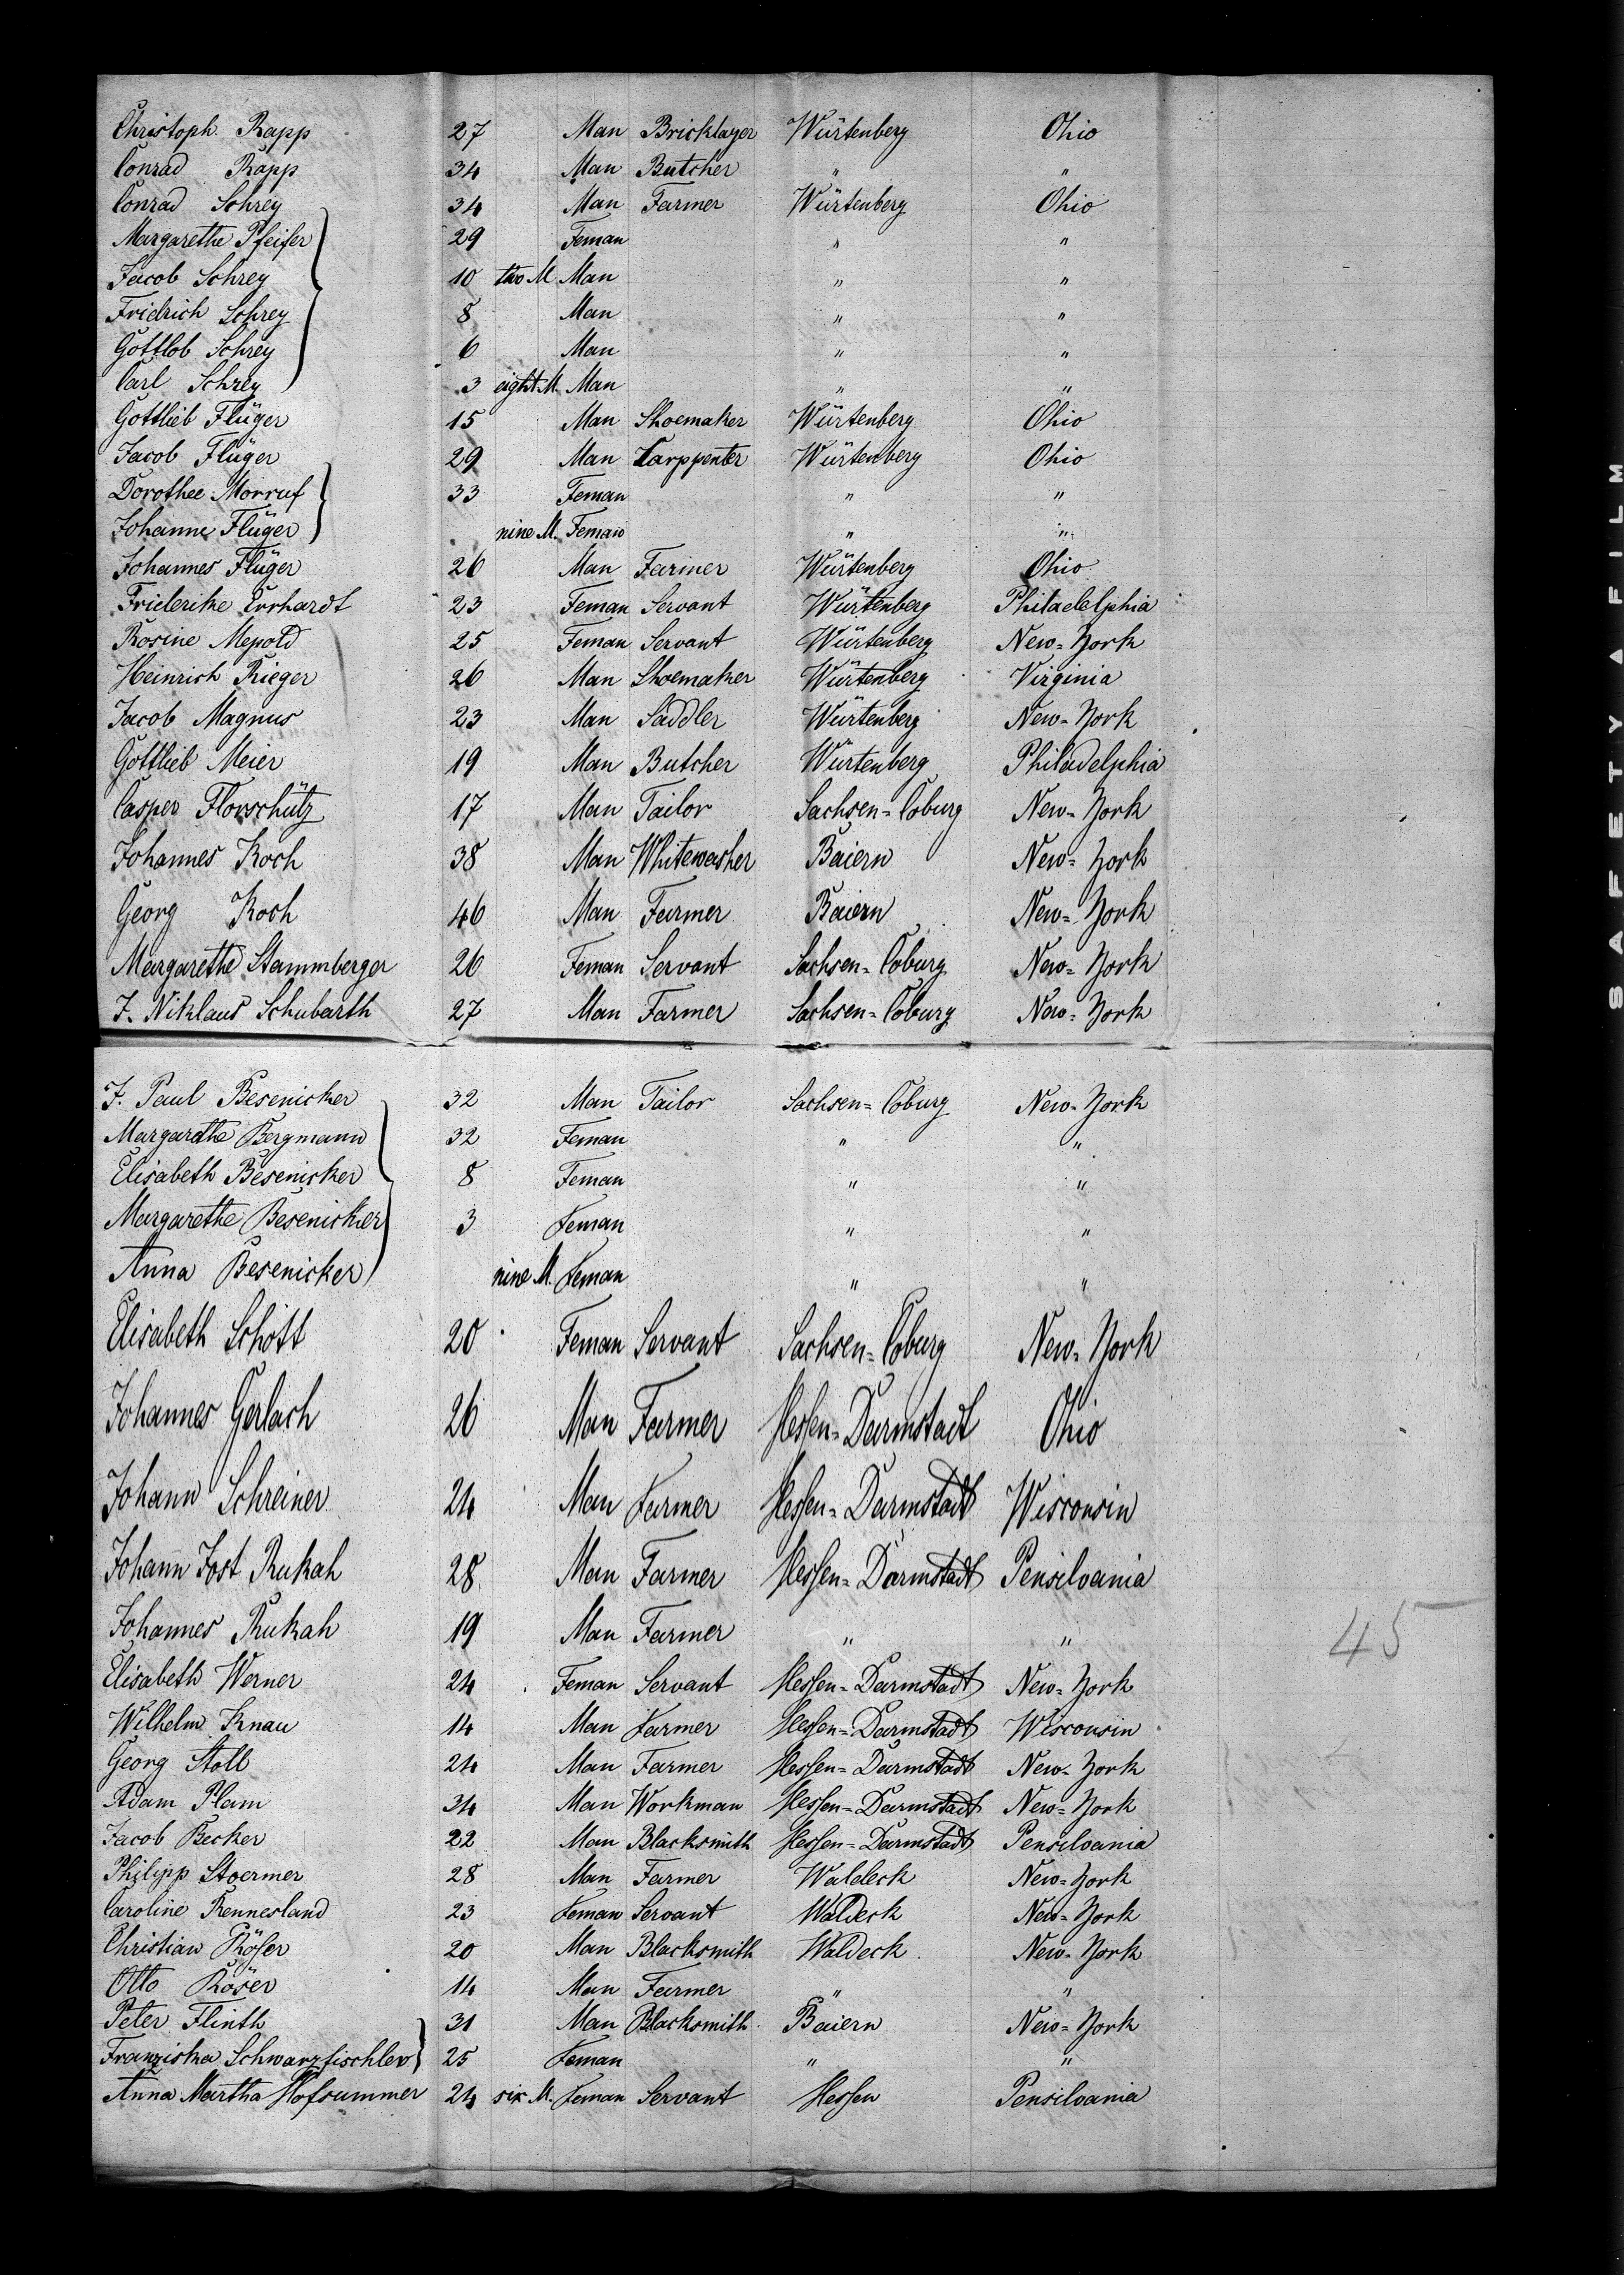 Christoph Rapp 27 Man Bricklayer Würtenberg Ohio
Conrad Rapp 34 Man Butcher " "
Conrad Schrey 34 Man Farmer Würtenberg Ohio
Margarethe Pfeifer 29 Feman " "
Jacob Schrey 10 two M Man " "
Fridrich Schrey 8 Man " "
Gottlob Schrey 6 Man " "
Carl Schrey 3 eight M. Man " "
Gottlieb Flüger 15 Man Shoemaker Würtenberg Ohio
Jacob Flüger 29 Man Carppenter Würtenberg Ohio
Dorothee Morruf 33 Feman " "
Johanne Flüger nine M. Feman " "
Johannes Flüger 26 Man Farmer Würtenberg Ohio
Friderike Errhardt 23 Feman Servant Würtenberg Philadelphia
Rosine Mepold 25 Feman Servant Würtenberg New=York
Heinrich Rieger 26 Man Shoemaker Würtenberg Virginia
Jacob Magnus 23 Man Saddler Würtenberg New=York
Gottlieb Meier 19 Man Butcher Würtenberg Philadelphia
Casper Florschütz 17 Man Tailor Sachsen=Coburg New=York
Johannes Koch 38 Man Whitewasher Baiern New=York
Georg Koch 46 Man Farmer Baiern New=York
Margarethe Stammberger 26 Feman Servant Sachsen=Coburg New=York
J. Niklaus Schubarth 27 Man Farmer Sachsen=Coburg New=York
J. Paul Besenicker 32 Man Tailor Sachsen=Coburg New=York
Margarethe Bergmann 32 Feman " "
Elisabeth Besenicker 8 Feman " "
Margarethe Besenicker 3 Feman " "
Anna Besenicker nine M. Feman " "
Elisabeth Schott 20 Feman Servant Sachsen=Coburg New=York
Johannes Gerlach 26 Man Farmer Hessen=Darmstadt Ohio
Johann Schreiner 24 Man Farmer Hessen=Darmstadt Wisconsin
Johann Jost Rukah 28 Man Farmer Hessen=Darmstadt Pensilvania
Johannes Rukah 19 Man Farmer " "
45
Elisabeth Werner 24 Feman Servant Hessen=Darmstadt New=York
Wilhelm Knau 14 Man Farmer Hessen=Darmstadt Wisconsin
Georg Stoll 24 Man Farmer Hessen=Darmstadt New=York
Adam Plam 34 Man Workman Hessen=Darmstadt New=York
Jacob Becker 22 Man Blacksmith Hessen=Darmstadt Pensilvania
Philipp Stoermer 28 Man Farmer Waldeck New=York
Caroline Rennesland 23 Feman Servant Waldeck New=York
Christian Röser 20 Man Blacksmith Waldeck New=York
Otto Röser 14 Man Farmer " "
Peter Flinth 31 Man Blacksmith Baiern New=York
Franziska Schwarzfischler 25 Feman " "
Anna Martha Hofsummer 24 six M. Feman Servant Hessen Pensilvania
SAFETY FILM